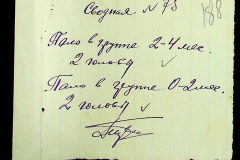 Сводная N 75
188
Пало в группе 2-4 мес.
2 голова
Пало в группе 0-2 мес.
2 голова